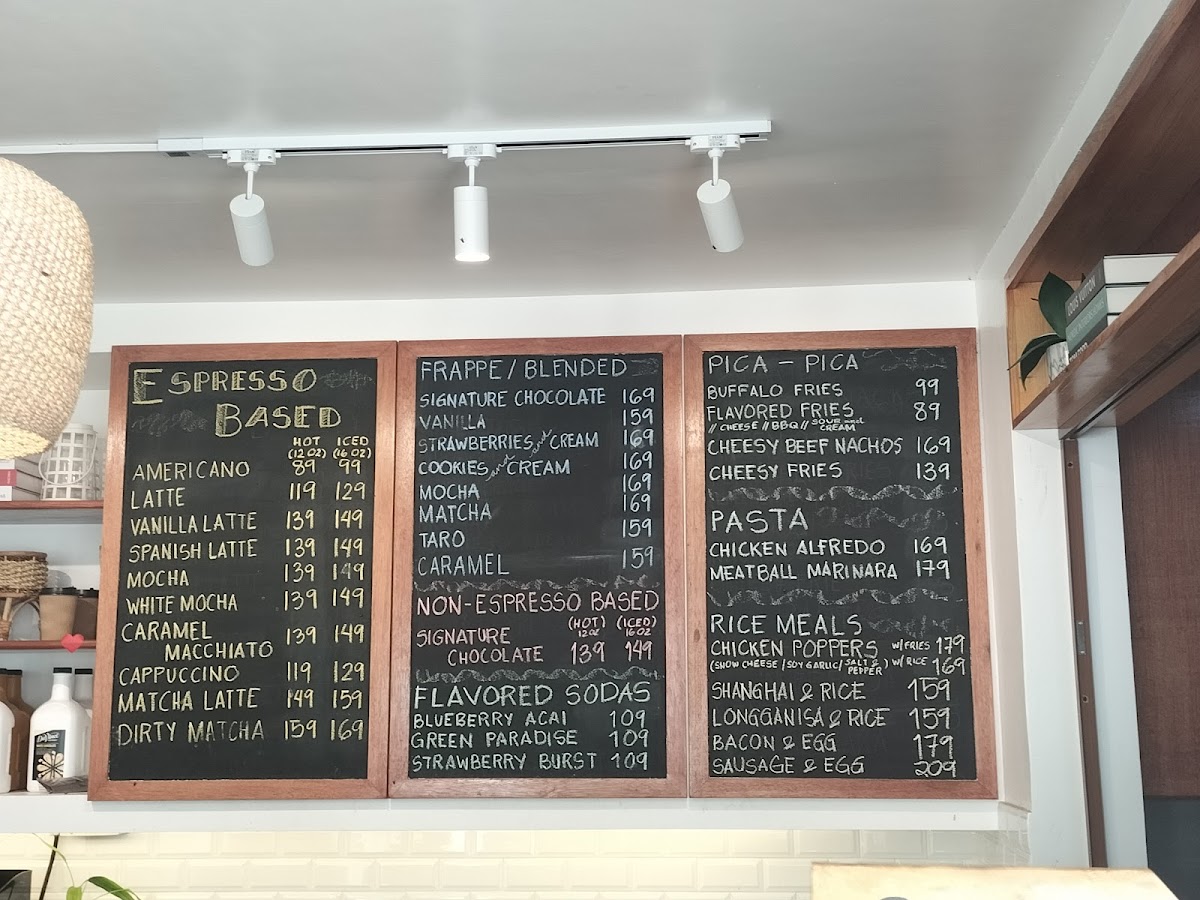 ESPRESSO
BASED
HOT ICED
(12 OZ) (16 OZ)
AMERICANO 89 99
LATTE 119 129
VANILLA LATTE 139 149
SPANISH LATTE 139 149
MOCHA 139 149
WHITE MOCHA 139 149
CARAMEL
MACCHIATO 139 149
CAPPUCCINO 119 129
MATCHA LATTE 149 159
DIRTY MATCHA 159 169
FRAPPE / BLENDED
SIGNATURE CHOCOLATE 169
VANILLA 159
STRAWBERRIES and CREAM 169
COOKIES and CREAM 169
MOCHA 169
MATCHA 169
TARO 159
CARAMEL 159
NON-ESPRESSO BASED
(HOT) (ICED)
12 OZ 16 OZ
SIGNATURE
CHOCOLATE 139 149
FLAVORED SODAS
BLUEBERRY ACAI 109
GREEN PARADISE 109
STRAWBERRY BURST 109
PICA - PICA
BUFFALO FRIES 99
FLAVORED FRIES 89
// CHEESE // BBQ // SOUR and CREAM
CHEESY BEEF NACHOS 169
CHEESY FRIES 139
PASTA
CHICKEN ALFREDO 169
MEATBALL MARINARA 179
RICE MEALS
CHICKEN POPPERS W/ FRIES 179
(SNOW CHEESE / SOY GARLIC / SALT & PEPPER W/ RICE 169
SHANGHAI & RICE 159
LONGGANISA & RICE 159
BACON & EGG 179
SAUSAGE & EGG 209
LOUIS VUITTON